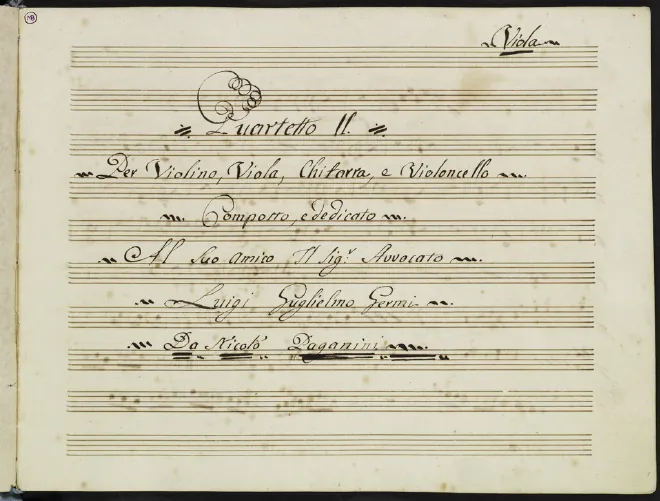 Viola
Quartetto II.
Per Violino, Viola, Chitarra, e Violoncello
Composto, e dedicato
Al Suo Amico Il Sig.r Avvocato
Luigi Guglielmo Germi
Da Nicolò Paganini